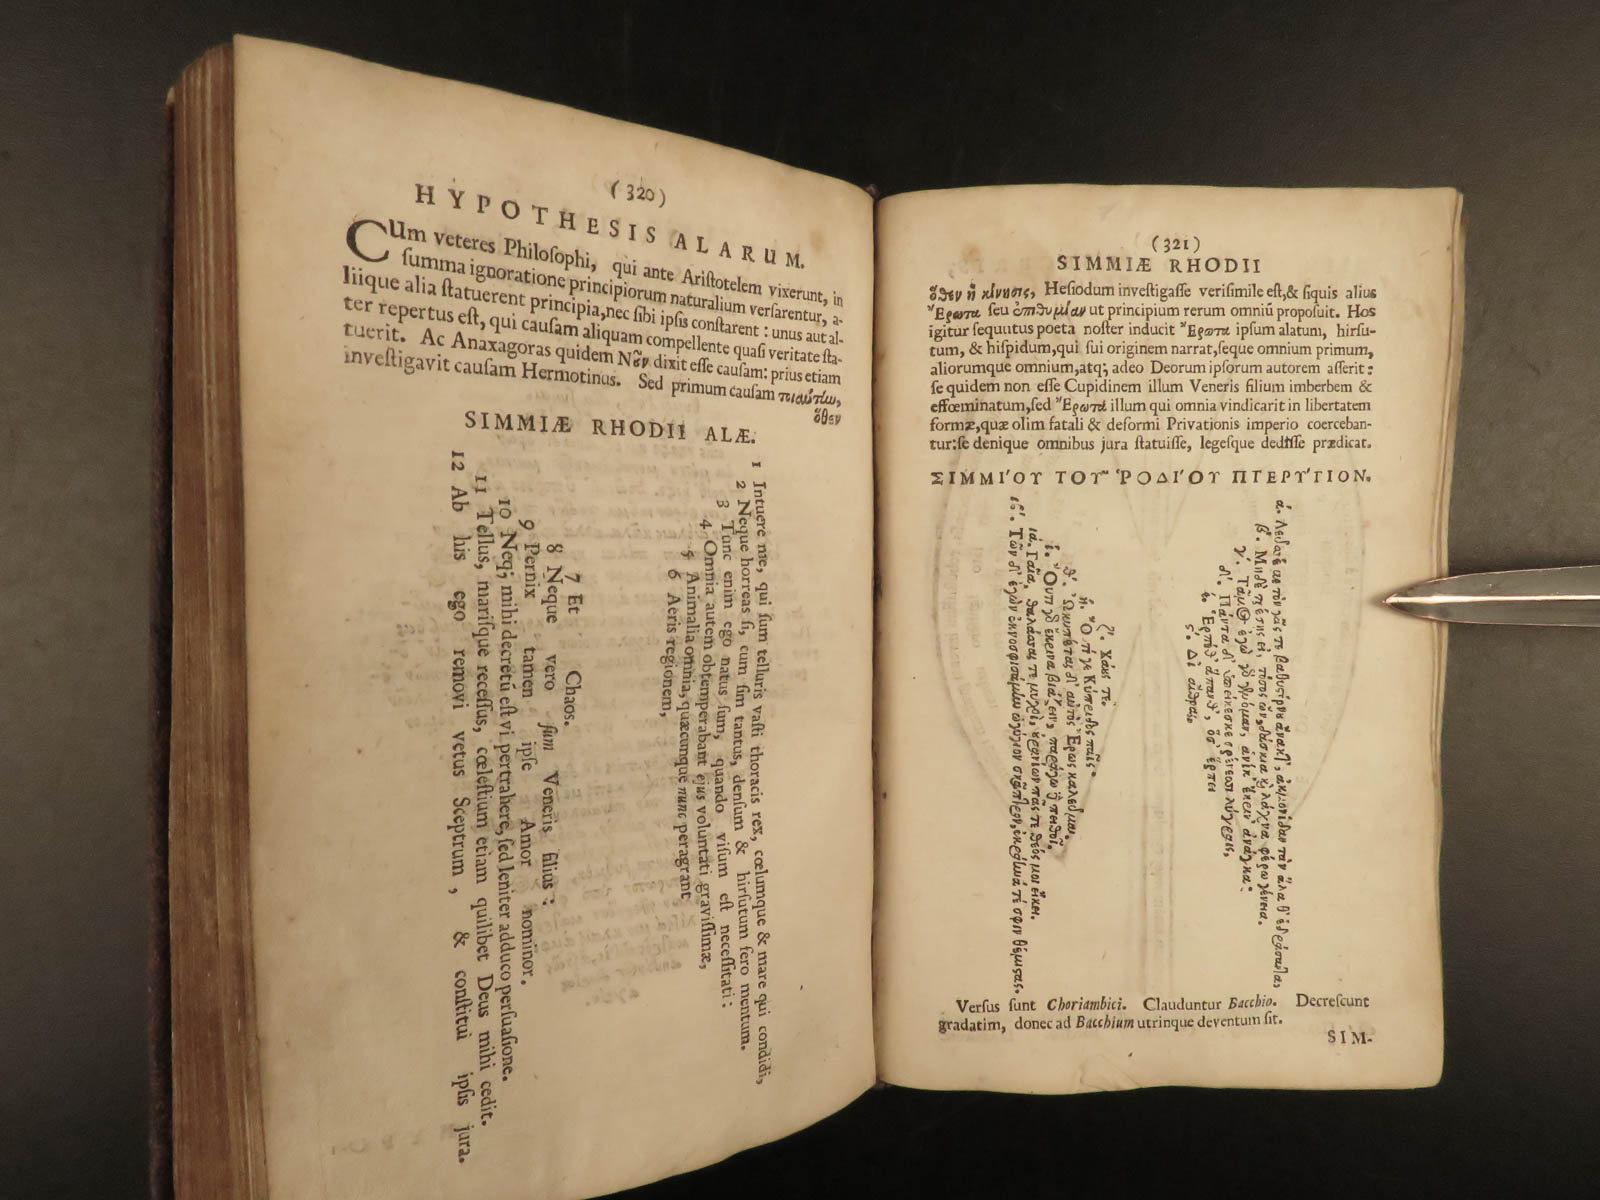 (320)
HYPOTHESIS ALARUM.
CUm veteres Philoſophi, qui ante Ariſtotelem vixerunt, in
ſumma ignoratione principiorum naturalium verſarentur, a-
liique alia ſtatuerent principia, nec ſibi ipſis conſtarent : unus aut al-
ter repertus eſt, qui cauſam aliquam compellente quaſi veritate ſta-
tuerit. Ac Anaxagoras quidem Νοῦν dixit eſſe cauſam: prius etiam
inveſtigavit cauſam Hermotinus. Sed primum cauſam τιαύτἰω,
ὅθεν
SIMMIÆ RHODII ALÆ.
1 Intuere me, qui ſum telluris vaſti thoracis rex, cœlumque & mare qui condidi,
2 Neque horreas ſi, cum ſim tantus, denſum & hirſutum fero mentum.
3 Tunc enim ego natus ſum, quando viſum eſt neceſſitati :
4 Omnia autem obtemperabant ejus voluntati graviſſimæ,
5 Animalia omnia, quæcunque nunc peragrant
6 Aeris regionem,
7 Et Chaos.
8 Neque vero ſum Veneris filius :
9 Pernix tamen ipſe Amor nominor.
10 Neq; mihi decretū eſt vi pertrahere, ſed leniter adduco perſuaſione.
11 Tellus, mariſque receſſus, cœleſtium etiam quilibet Deus mihi cedit.
12 Ab his ego removi vetus Sceptrum, & conſtitui ipſis jura.
(321)
SIMMIÆ RHODII
ὅθεν ἡ κίνησις, Heſiodum inveſtigaſſe veriſimile eſt, & ſiquis alius
Ἔρωτα ſeu ἐπιθυμίαν ut principium rerum omniū propoſuit. Hos
igitur ſequutus poeta noſter inducit Ἔρωτα ipſum alatum, hirſu-
tum, & hiſpidum, qui ſui originem narrat, ſeque omnium primum,
aliorumque omnium, atq; adeo Deorum ipſorum autorem aſſerit :
ſe quidem non eſſe Cupidinem illum Veneris filium imberbem &
effœminatum, ſed Ἔρωτα illum qui omnia vindicarit in libertatem
formæ, quæ olim fatali & deformi Privationis imperio coerceban-
tur: ſe denique omnibus jura ſtatuiſſe, legeſque dediſſe prædicat.
ΣΙΜΜΙ'ΟΥ ΤΟΥ῀ ῾ΡΟΔΙ'ΟΥ ΠΤΕΡΥ'ΓΙΟΝ.
ά. Λεῦσσέ με τὸν γᾶς τε βαθυστέρνυ ἄνακτ', ἀκμονίδαν τὰν ἅλα θ' ἑδράσαντα,
β'. Μηδὲ τρέσῃς εἰ, τόσος ὢν, δάσκια λάχνα φέρω γένεια.
γ'. Τᾶμος ἐγὼ γὸ γενόμαν, ἁνίκ' ἔκριν' ἀνάγκα :
δ'. Πάντα δ' ὑπείκεσκε φράδεσσι λυγραῖς,
έ. Ἑρπέθ' ἅπανθ', ὅσ' ἕρπει
ς'. Δι' αἴθρας,
ζ'. Χάυς τε.
ή. Ὄτι γε Κύπριδος παῖς·
θ'. Ὠκυπέτας δ' αὐτὸς Ἔρως καλεῦμαι.
ί. Οὔτι γὸ ἔκρινα βιάζειν, παράγω δὲ πειθοῖ.
ιά. Γαῖα, θαλάσσας τε μυχοὶ, κρανίων πᾶς τε θεός μοι εἴκει.
ιϐ'. Τῶν δ' ἐγὼν ἐκνοσφισάμην ὠγύγιον σκᾶπτρον, ἔκρινα τέ σφιν θέμισας.
Verſus ſunt Choriambici. Clauduntur Bacchio. Decreſcunt
gradatim, donec ad Bacchium utrinque deventum ſit.
SIM-